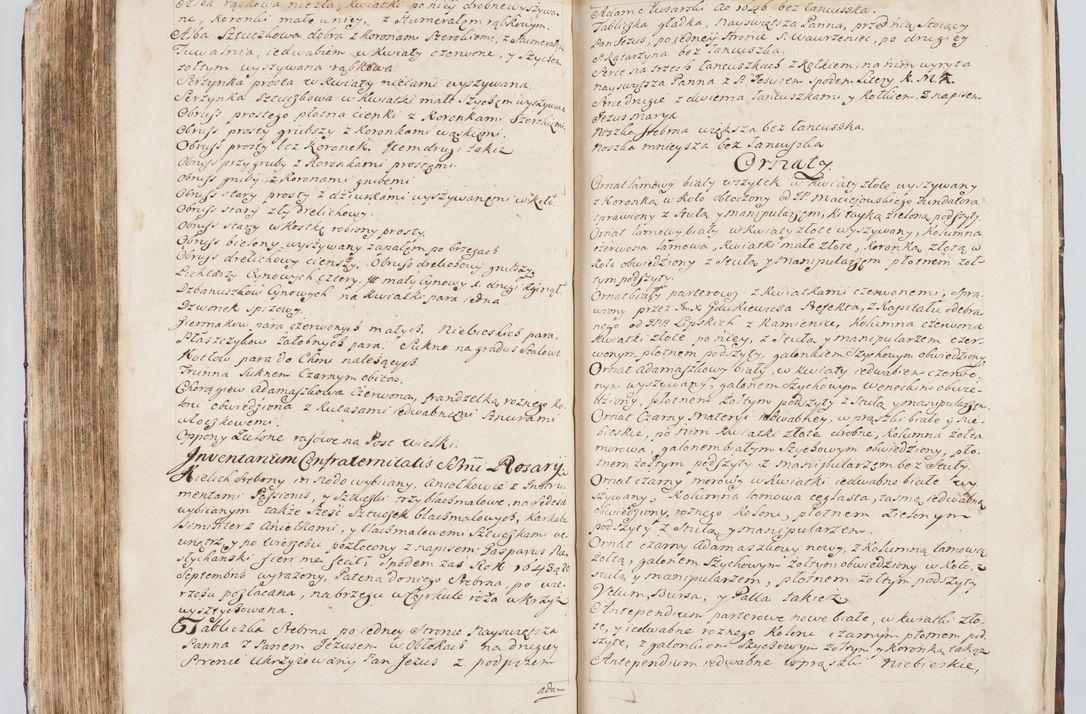 Alba rąbkowa niezła, kwiatki po niey drobne wyszywa-
ne, koronki małe u niey, z Humerałem rąbkowym.
Alba Sztuczkowa dobra z koronami Szerokiemi, z Humerałem
Tuwalnia iedwabiem w kwiaty czerwone, y Szychem
żołtym wyszywana rąbkowa.
Serzynka prosta w kwiaty niciami wyszywana.
Serzynka Sztuczkowa w kwiatki małe Szychem wyszywana
Obruss prostego płotna cienki z koronkami Szerokiemi.
Obruss prosty grubszy z koronkami wąskiemi.
Obruss prosty bez koronek. Item drugi takiż
Obruss przygruby z koronkami prostemi
Obruss gruby z koronami grubemi
Obruss stary prosty z dziurkami wyszywanemi w koło.
Obruss stary zły drelichowy.
Obruss stary w kostkę robiony prosty.
Obruss bielony wyszywany zapałem po brzegach
Obruss drelichowy cienszy. Obruss drelichowy grubszy
Lichtarzy Cynowych cztery. It mały Cynowy 1. drugi
Dzbanuszków Cynowych na kwiatki para iedna
Dzwonek spizowy.
Firmakow para czerwonych małych, Niebieskich para.
Płaszczykow żałobnych para; Sukno na gradus stalowe
Kotłow para do Choru należących.
Trunna Suknem Czarnym obita.
Chorągiew adamaszkowa Czerwona, frandzelką rożnego ko-
loru obwiedziona z kutasami iedwabnemi Sznurami
włoczkowemi.
Oppony Zielone rasowe na Post wielki.
Inventarium Confraternitatis SSmi Rosarij.
Kielich Srebrny in Nodo wybijany, Aniałkowie z Instru-
mentami Passionis, y Szkiełki trzy blachmalowe, na pedesta
wybijanym także Sześć Sztuczek blachmalowych, karkasz
Similiter z Aniełkami, y blachmalowemi Sztuczkami we-
wnątrz y po wierzchu pozłocony z napisem: Gasparus Ra-
styckański fieri me fecit; Spodem zaś Rok 1643 20
Septembris wyrażony, Patena do niego Srebrna, po wie-
rzchu pozłacana, na brzegu w Cyrkule roża w krzyż
wysztychowana.
Tabliczka Srebrna, po iedney stronie Nayświętsza
Panna z Panem Jezusem w Obłokach na drugiey
Stronie Ukrzyżowany Pan Jezus z podpisem
adam
Adame Husarski Ao 1646 bez łancuszka.
Tabliczka gładka, Nayswiętsza Panna, przed nią stoiący
Pan Jezus, po iedney Stronie S. Wawrzeniec, po drugiey
S. Katarzyna bez łancuszka.
Serce na trzech łancuszkach z kołkiem; na nim wyryta
nayswiętsza Panna z P. Jezusem Spodem Litery K. M. K.
Serce drugie z dwiema łancuszkami y kołkiem z napisem
Jezus Marya
Noszka Srebrna większa bez łancuszka.
Noszka mnieysza bez łancuszka
Ornaty.
Ornat lamowy biały wszytek w kwiaty złote wyszywany
z koronką w koło obłoczony od JP. Maciejowskiego Fundatora
sprawiony z Stułą y manipularzem, kitayką zieloną podszyty.
Ornat lamowy biały w kwiaty złote wyszywany, kolumna
czerwona lamowa, kwiatki małe złote, koronką złotą w
koło obwiedziony z Stułą y manipularzem płotnem żoł-
tym podszyty.
Ornat biały parterowy z kwiatkami czerwonemi, spra-
wiony przez Jmx Gelickiewicza Prefekta, z Kapitału odebra-
nego od JPP Lipskich z Kamienice, kolumna czerwona
kwiatki złote po niey, z Stułą y manipularzem czer-
wonym płotnem podszyty, galonkiem Szychowym obwiedziony
Ornat Adamaszkowy biały, w kwiaty iedwabiem czerwo-
nym wyszywany, galonem Szychowym weneckim obwie-
dziony, płotnem żołtym podszyty z Stułą y manipularzem.
Ornat Czarny Materyi iedwabney, w prążki białe y Nie-
bieskie, po nim kwiatki złote drobne, kolumna żołta
morowa, galonem białym Szychowym obwiedziony, pło-
tnem żołtym podszyty z manipularzem bez Stuły.
Ornat czarny morowy w kwiatki iedwabne białe wy
szywany, kolumna lamowa ceglasta, tasmą iedwabną
obwiedziony, rożnego koloru, płotnem Zielonym
podszyty z Stułą, y manipularzem.
Ornat czarny Adamaszkowy nowy, z kolumną lamową
żołtą, galonem Szychowym żołtym obwiedziony w koło, z
Stułą y manipularzem, płotnem żołtym podszyty
Velum, Bursa, y Palla takież
Antependium parterowe nowe białe, w kwiatki zło-
te, y iedwabne rożnego koloru czarnym płotnem pod-
szyte, z galonkiem Szychowym żołtym y koronką takąż
Antependium iedwabne w prążki niebieskie,